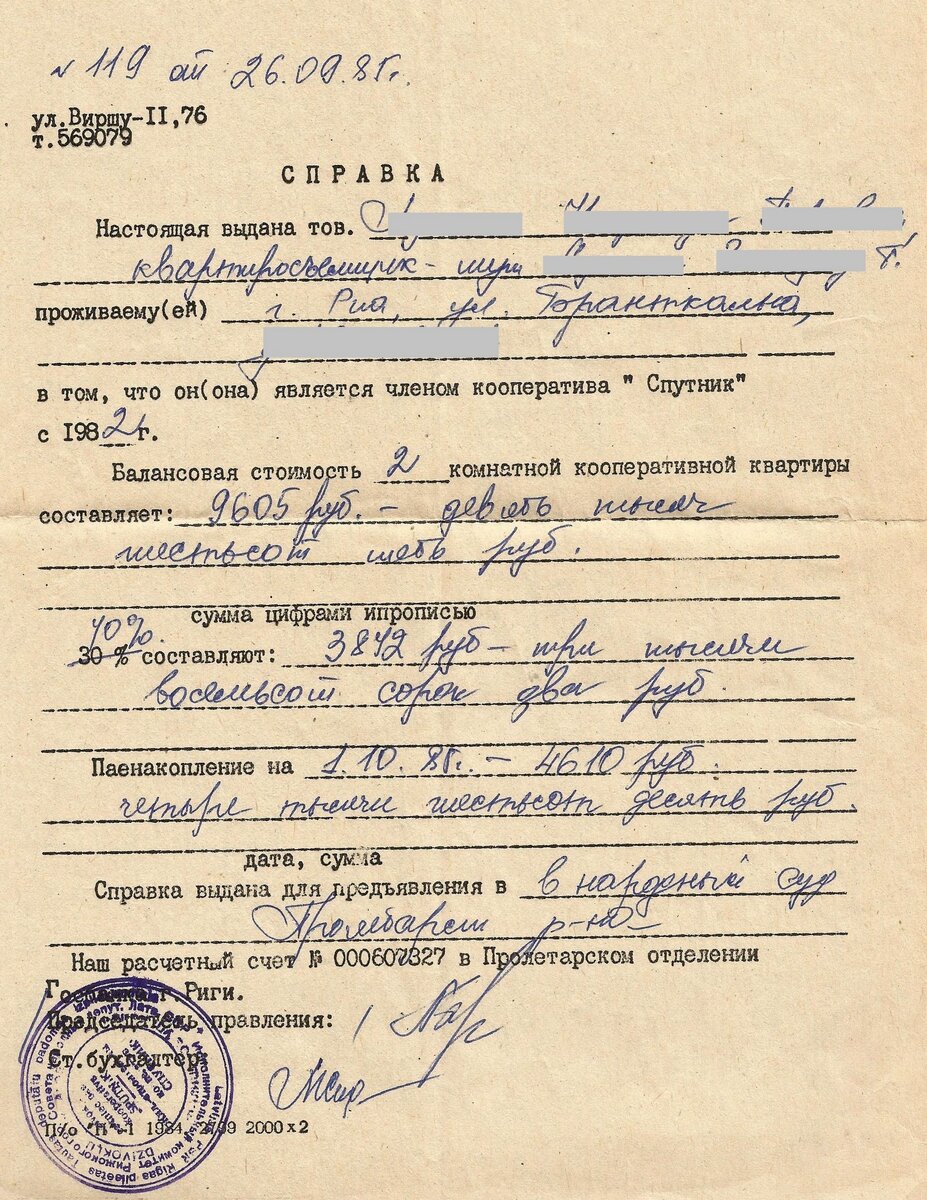 N 119 от 26.09.85г.
ул.Виршу-II,76
т.569079
СПРАВКА
Настоящая выдана тов.
квартиросъемщик - Г.
проживаему(ей) г. Рига, ул.
в том, что он(она) является членом кооператива " Спутник"
с 1982г.
Балансовая стоимость 2 комнатной кооперативной квартиры
составляет: 9605 руб. - девять тысяч
шестьсот пять руб.
сумма цифрами ипрописью
40%.
30 % составляют: 3842 руб - три тысячи
восемьсот сорок два руб.
Паенакопление на 1.10.85г. - 4610 руб.
четыре тысячи шестьсот десять руб.
дата, сумма
Справка выдана для предъявления в в народный суд
р-на
Наш расчетный счет № 000607327 в Пролетарском отделении
Госбанка г. Риги.
Председатель правления:
Ст.бухгалтер
П/о "П"-1 1984, 2799 2000 x 2